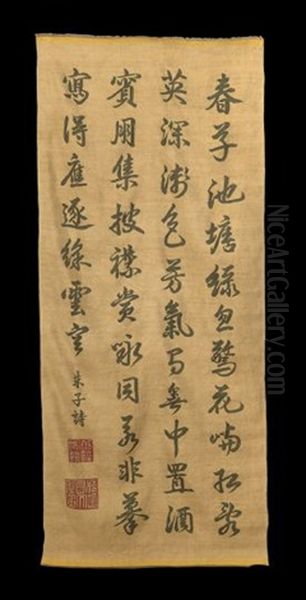 春草池塘綠忽驚花嶼紅
英深淺色芳氣有無中置酒
賓朋集披襟賞詠同若非摹
寫得應逐綵雲空
朱子詩
NiceArtGallery.com